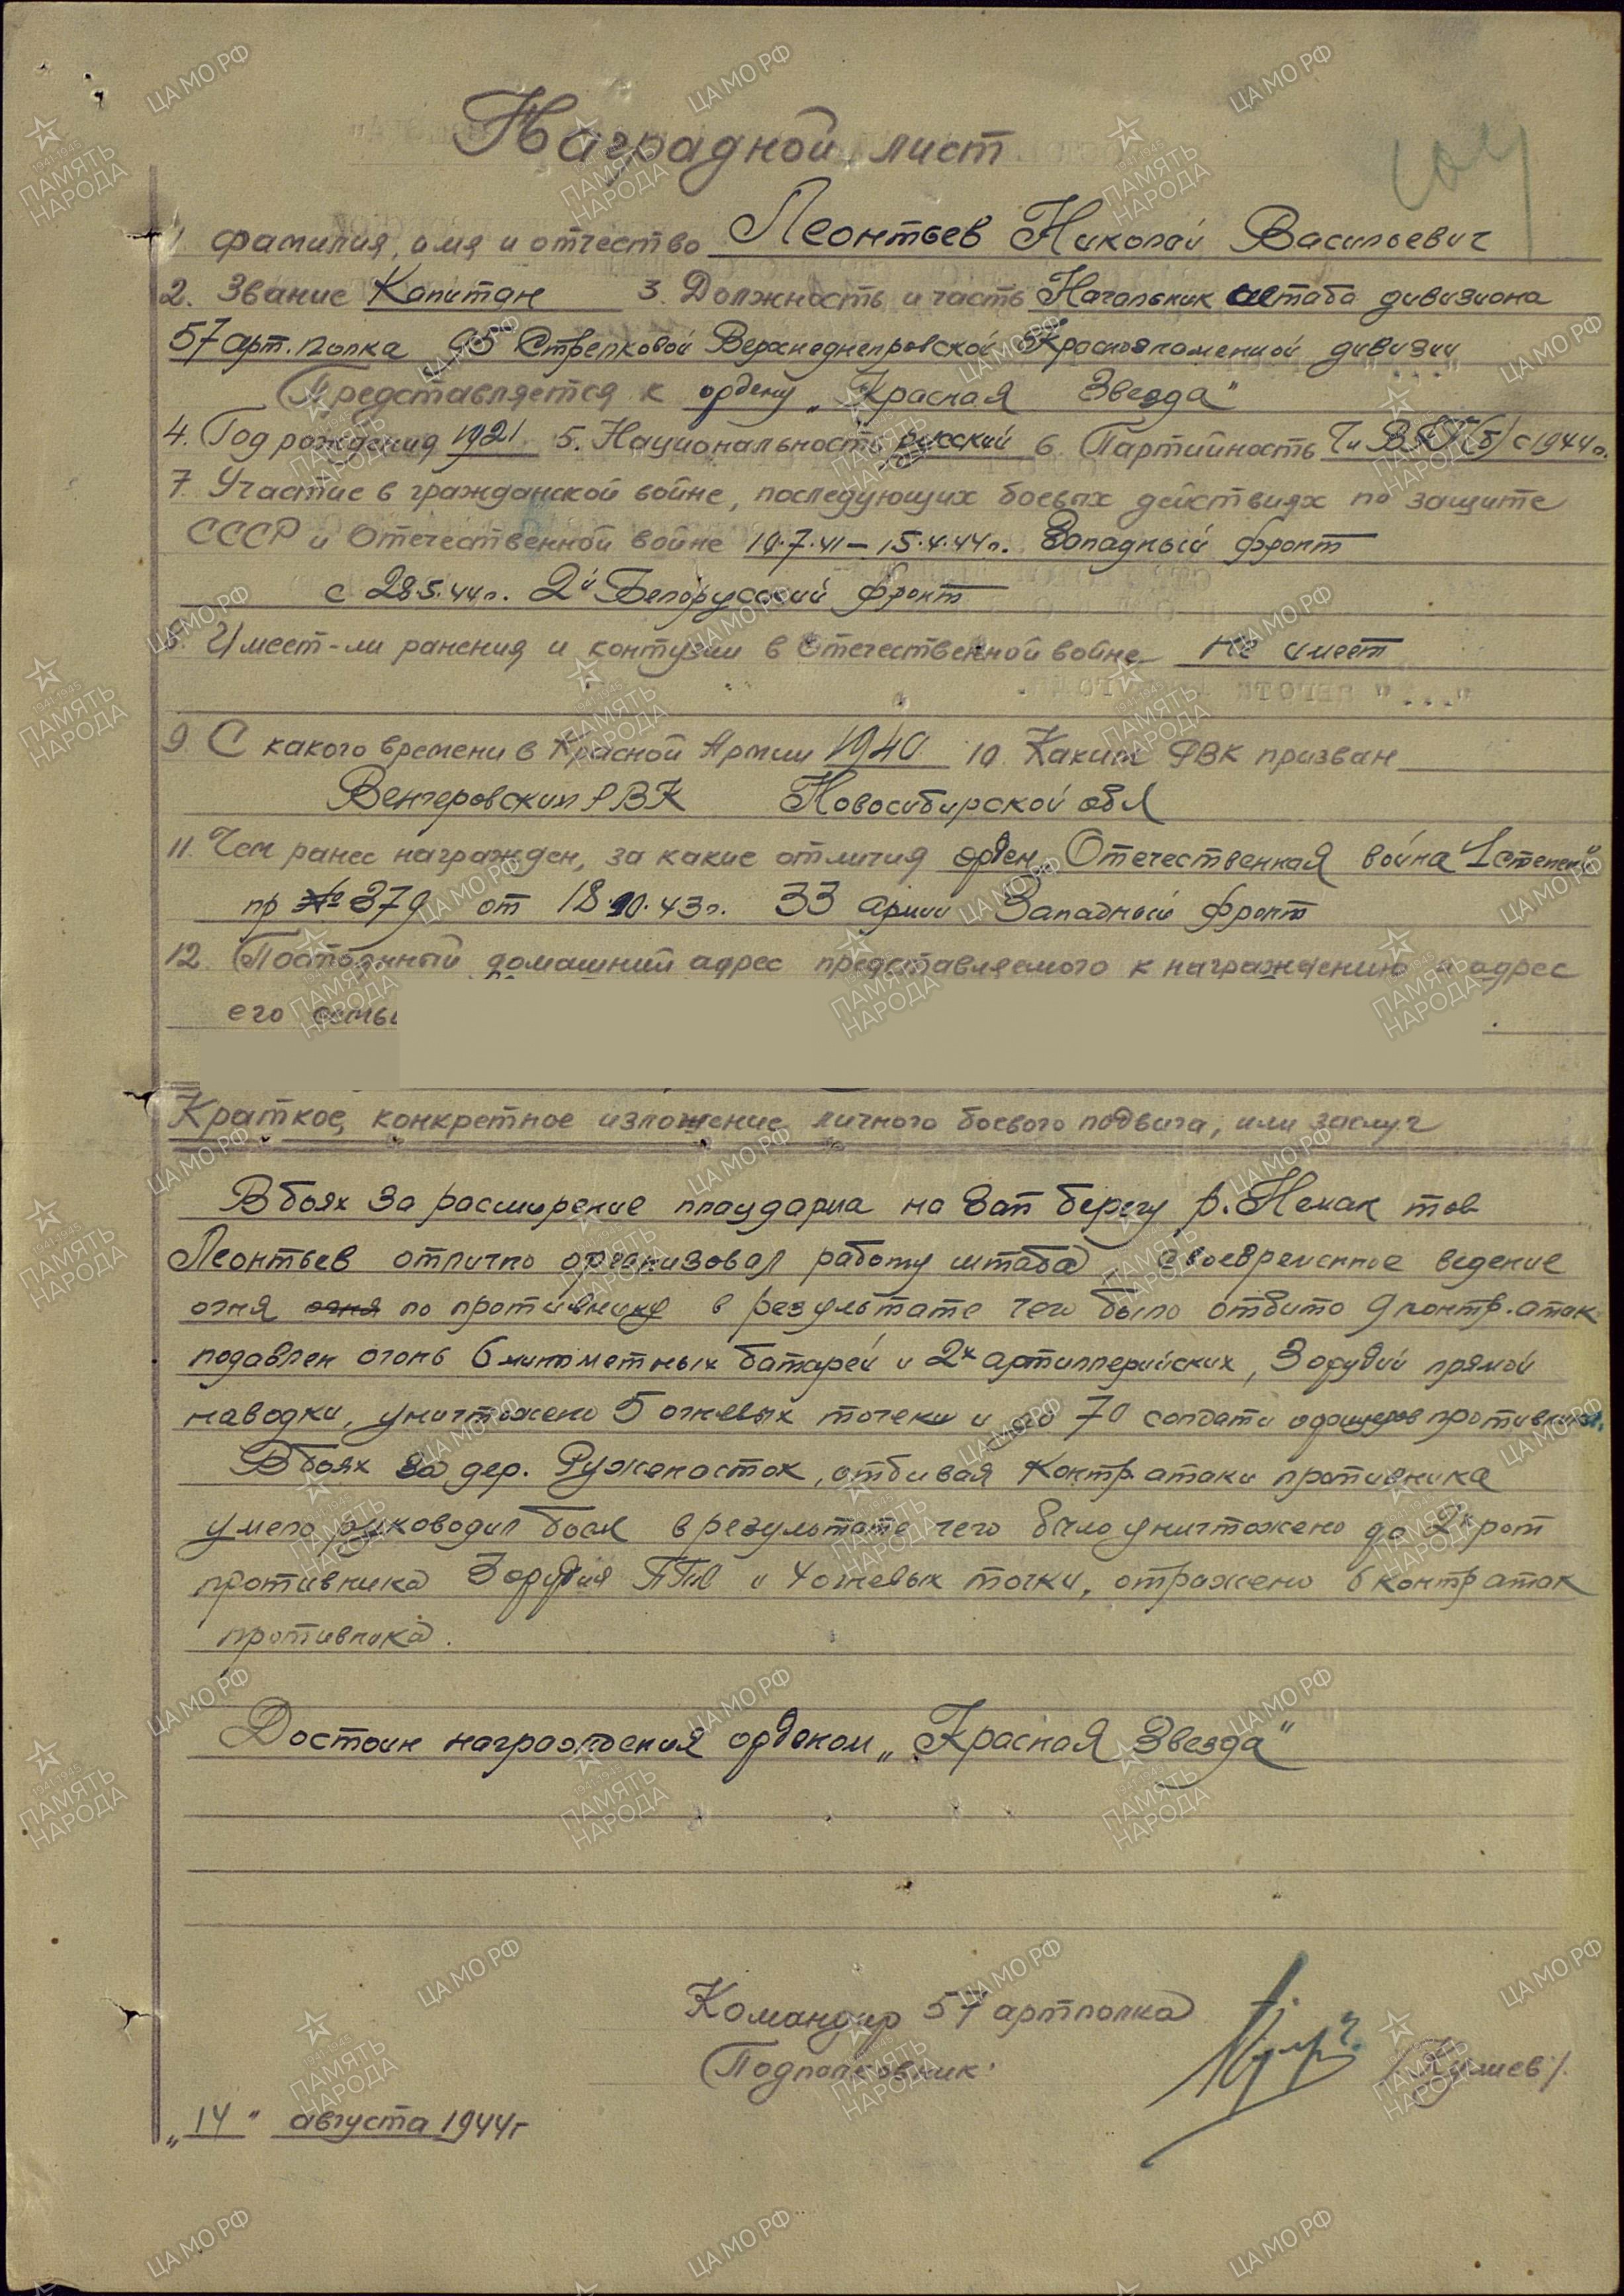 Наградной лист
1. Фамилия, имя и отчество Леонтьев Николай Васильевич
2. Звание Капитан 3. Должность и часть Начальник штаба дивизиона
57 арт. полка 95 Стрелковой Верхнеднепровской Краснознаменной дивизии
Представляется к ордену „Красная Звезда"
4. Год рождения 1921 5. Национальность русский 6. Партийность Чл ВКП(б) с 1944 г.
7. Участие в гражданской войне, последующих боевых действиях по защите
СССР и Отечественной войне 10.7.41 – 15.4.44 г. Западный фронт
с 28.5.44 г. 2й Белорусский фронт
8. Имеет-ли ранения и контузии в Отечественной войне не имеет
9. С какого времени в Красной Армии 1940 10. Каким РВК призван
Венгеровским РВК Новосибирской обл
11. Чем ранее награжден, за какие отличия орден „Отечественная война 1 степени"
пр № 379 от 18.10.43 г. 33 армии Западный фронт
12. Постоянный домашний адрес представляемого к награждению и адрес
его семьи
Краткое, конкретное изложение личного боевого подвига, или заслуг
В боях за расширение плацдарма на зап берегу р. Неман тов
Леонтьев отлично организовал работу штаба, своевременное ведение
огня огня по противнику в результате чего было отбито 9 контр. атак
подавлен огонь 6 минометных батарей и 2х артиллерийских, 3 орудий прямой
наводки, уничтожено 5 огневых точек и до 70 солдат и офицеров противника.
В боях за дер. Руженосток, отбивая контр атаки противника
умело руководил боем в результате чего было уничтожено до 2х рот
противника 3 орудия ПТО и 4 огневых точки, отражено 6 контр атак
противника.
Достоин награждения орденом „Красная Звезда"
Командир 57 артполка
Подполковник
„14" августа 1944 г
ЦАМО РФ
ПАМЯТЬ НАРОДА
1941-1945